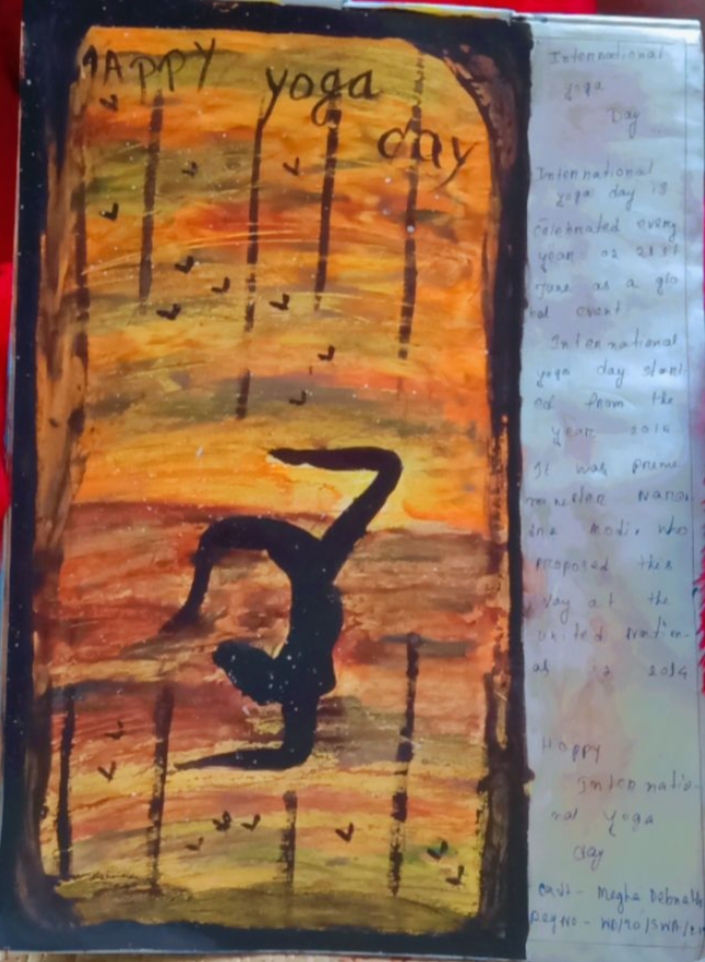 HAPPY
yoga
day
International
yoga
Day
International
yoga day is
celebrated every
year on 21st
June as a glo
bal event
International
yoga day start-
ed from the
year 2015
It was prime
minister Naren
dra modi, who
proposed this
Day at the
united nation-
as in 2014
Happy
Internatio-
nal yoga
day
Cadt - Megha Debnath
Reg No - WB/20/SWA/